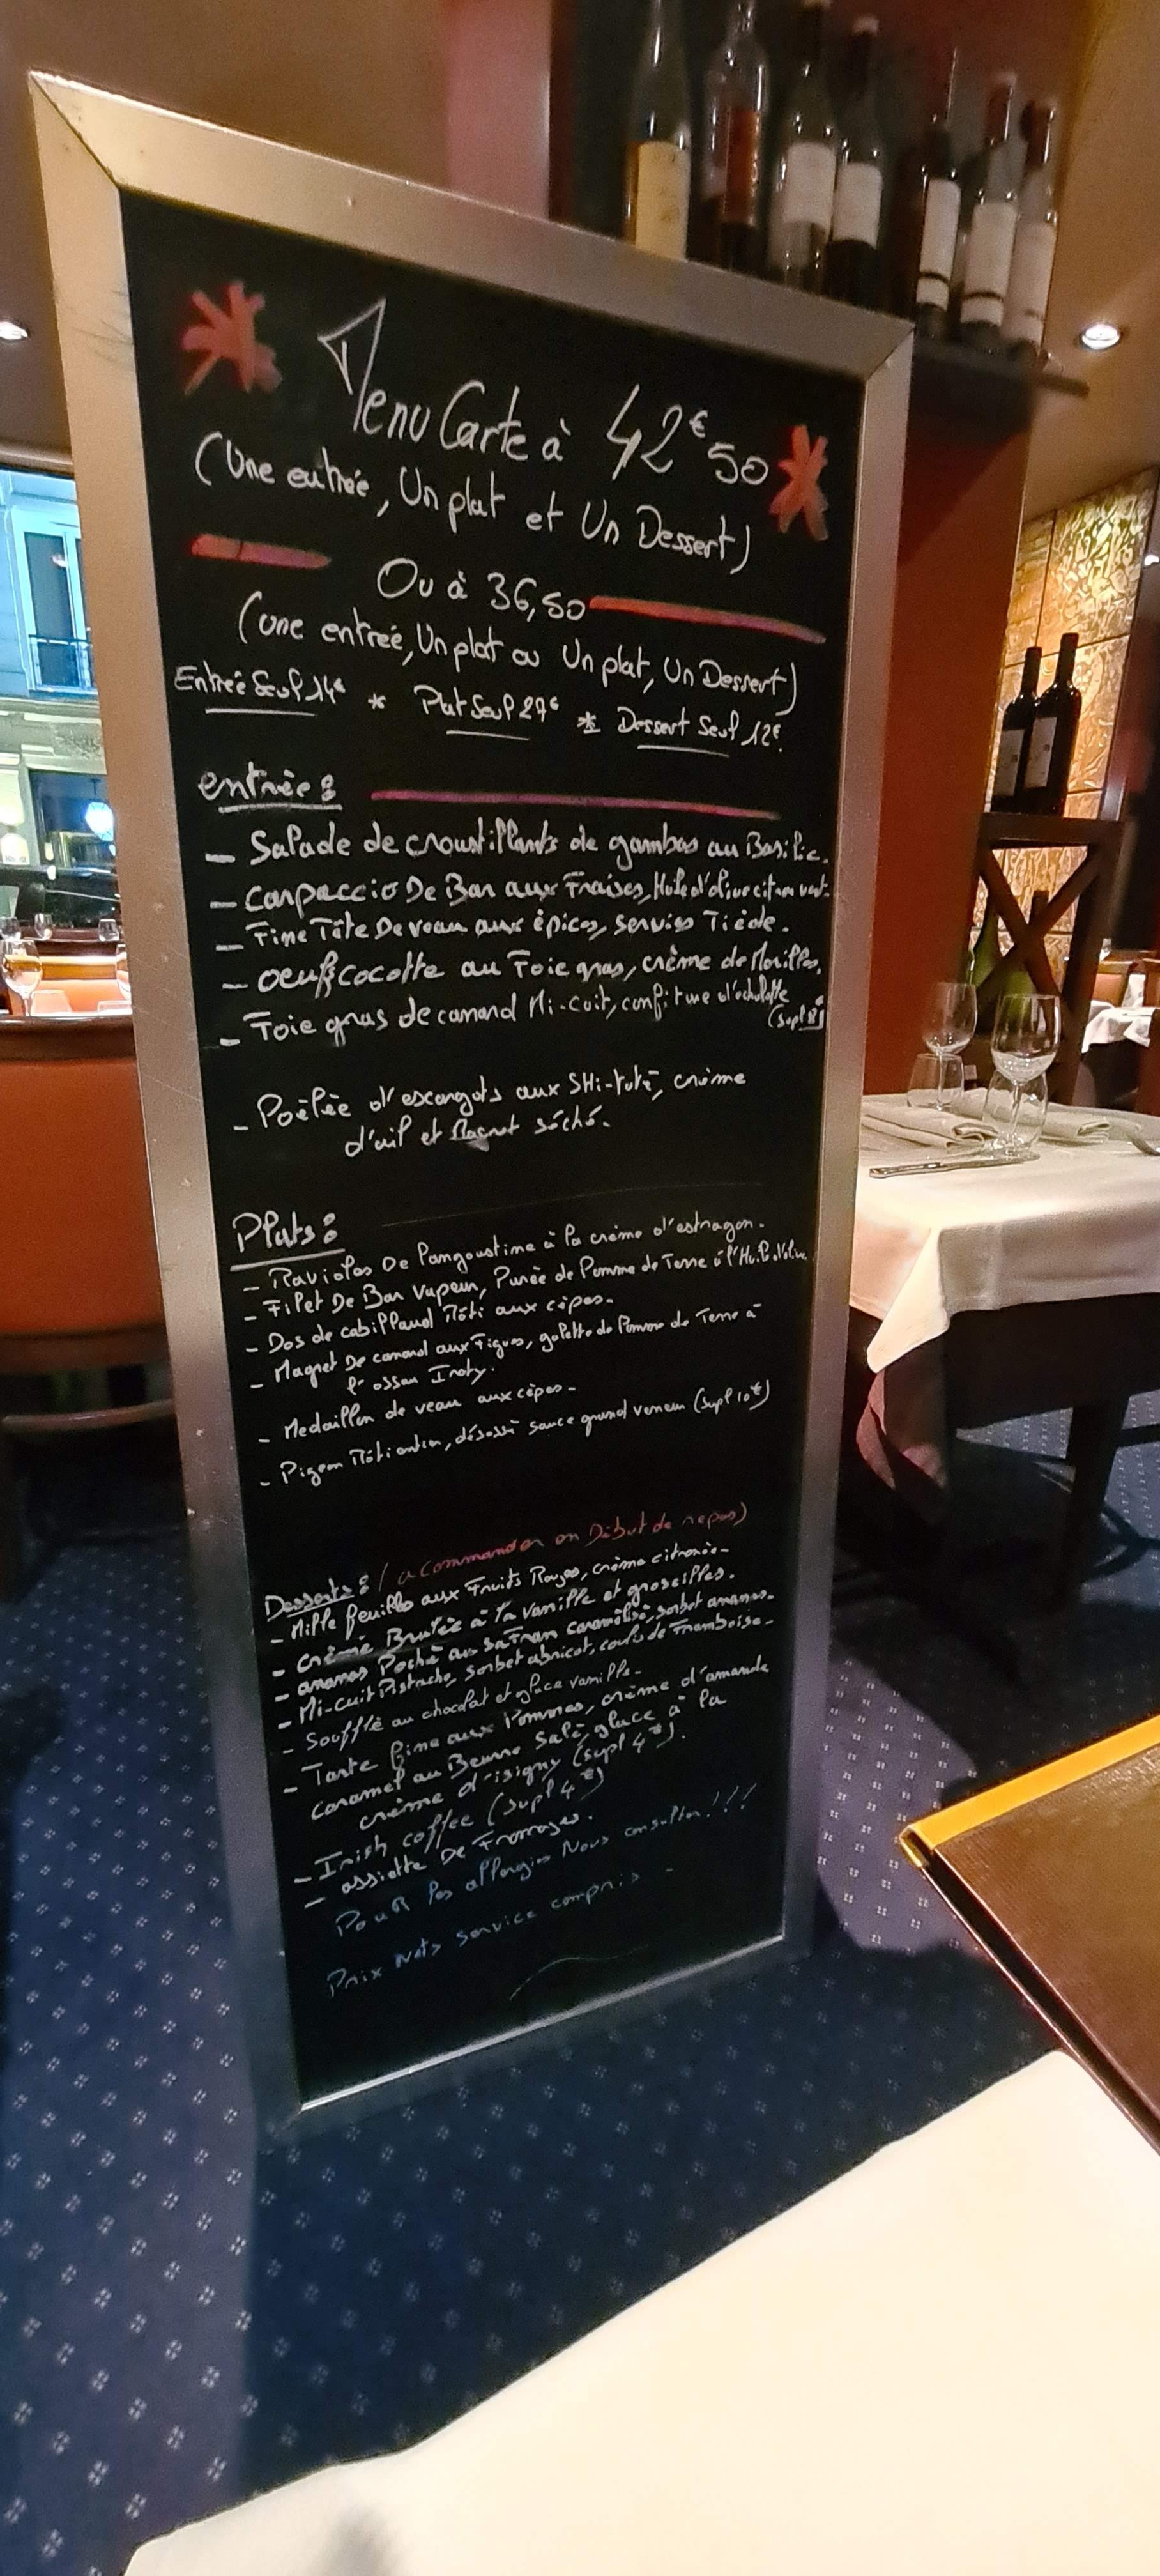 Menu Carte à 42€50
(Une entrée, Un plat et Un Dessert)
Ou à 36,50
(une entrée, Un plat ou Un plat, Un Dessert)
Entrée Seul 14€ * Plat Seul 27€ * Dessert Seul 12€
entrée:
- Salade de croustillants de gambas au Basilic.
- Carpaccio De Bar aux Fraises, Huile d'olive citron vert.
- Fine Tête De veau aux épices, servies Tiède.
- oeufs cocotte au Foie gras, crème de Morilles.
- Foie gras de canard Mi-cuit, confiture d'échalotte
(supl 8€)
- Poêlée d'escargots aux SHi-také, crème
d'ail et Magret séché.
Plats:
- Ravioles De langoustine à la crème d'estragon.
- Filet De Bar Vapeur, Purée de Pomme de Terre à l'Huile d'olive.
- Dos de cabillaud Rôti aux cèpes.
- Magret De canard aux Figues, galette de Pomme de Terre à
l'ossau Iraty.
- Medaillon de veau aux cèpes.
- Pigeon Rôti entier, désossé sauce grand veneur (supl 10€)
Desserts: (a commander en Début de repas)
- Mille feuilles aux Fruits Rouges, crème citronée.
- crème Brulée à la vanille et groseilles.
- ananas Poché au Safran caramélisé, sorbet ananas.
- Mi-cuit Pistache, sorbet abricot, coulis de Framboise.
- Soufflé au chocolat et glace vanille.
- Tarte fine aux Pommes, crème d'amande
caramel au Beurre Salé, glace à la
crème d'isigny (supl 4€).
- Irish coffee (supl 4€)
- assiette De Fromages.
Pour les allergies Nous consulter!!!
Prix Nets service compris